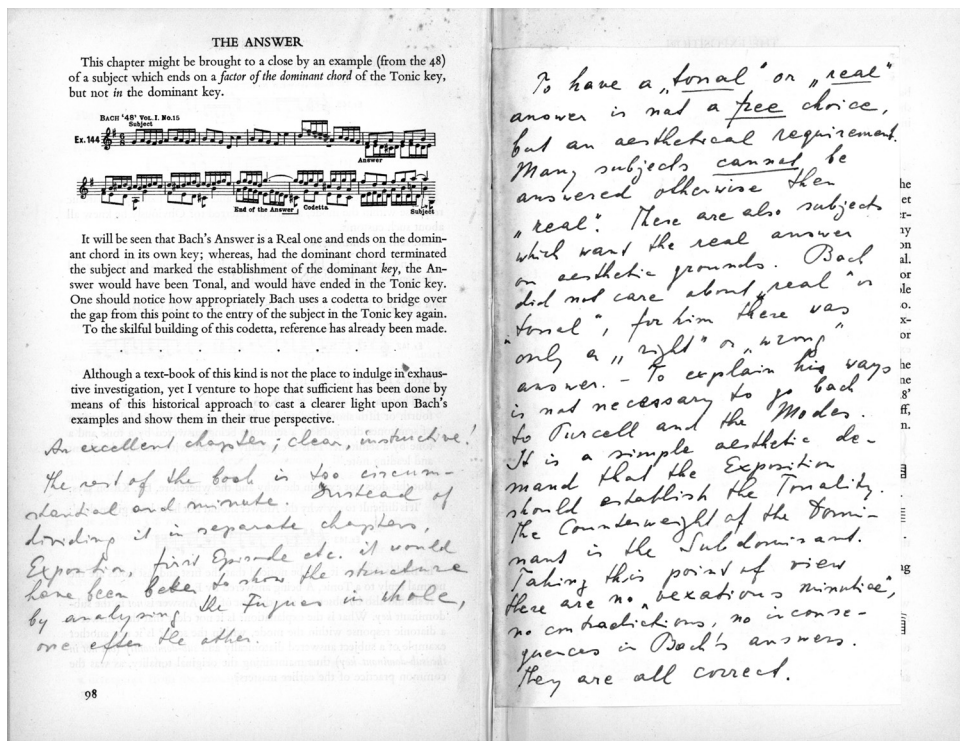 THE ANSWER
This chapter might be brought to a close by an example (from the 48)
of a subject which ends on a factor of the dominant chord of the Tonic key,
but not in the dominant key.
BACH '48' VOL. I. No. 15
Subject
Ex. 144
Answer
End of the Answer
Codetta
Subject
It will be seen that Bach's Answer is a Real one and ends on the domin-
ant chord in its own key; whereas, had the dominant chord terminated
the subject and marked the establishment of the dominant key, the An-
swer would have been Tonal, and would have ended in the Tonic key.
One should notice how appropriately Bach uses a codetta to bridge over
the gap from this point to the entry of the subject in the Tonic key again.
To the skilful building of this codetta, reference has already been made.
Although a text-book of this kind is not the place to indulge in exhaus-
tive investigation, yet I venture to hope that sufficient has been done by
means of this historical approach to cast a clearer light upon Bach's
examples and show them in their true perspective.
An excellent chapter; clear, instructive!
The rest of the book is too circum-
stantial and minute. Instead of
dividing it in separate chapters,
Exposition, first Episode etc. it would
have been better to show the structure
by analysing the Fugues in whole,
one after the other.
98
To have a „tonal" or „real"
answer is not a free choice,
but an aesthetical requirement.
Many subjects cannot be
answered otherwise then
„real". There are also subjects
which want the real answer
on aesthetic grounds. Bach
did not care about „real" or
"tonal", for him there was
only a „right" or „wrong"
answer. – To explain his ways
is not necessary to go back
to Purcell and the Modes.
It is a simple aesthetic de-
mand that the Exposition
should establish the Tonality.
The Counterweight of the Domi-
nant is the Subdominant.
Taking this point of view
there are no „vexations minutiae",
no contradictions, no inconse-
quences in Bach's answers.
They are all correct.
he
et
er-
ny
on
al.
or
ple
o.
x-
or
he
ne
8'
ff,
n.
ng